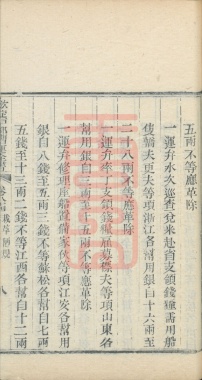 五兩不等應革除
一運弁水次逓查兌米赴南支領錢糧需用船
隻轎夫更夫等項浙江各幫用銀自十六兩至
二十八兩不等應革除
一運弁率丁支領錢糧雇募縴夫等項山東各
幫用銀自三兩至十五兩不等應革除
一運弁修理座船置備家伙等項江安各幫用
銀自八錢至五兩三錢不等蘇松各幫自七兩
五錢至十三兩二錢不等江西各幫自十二兩
欽定戶部漕運全書 卷八十 裁革陋規